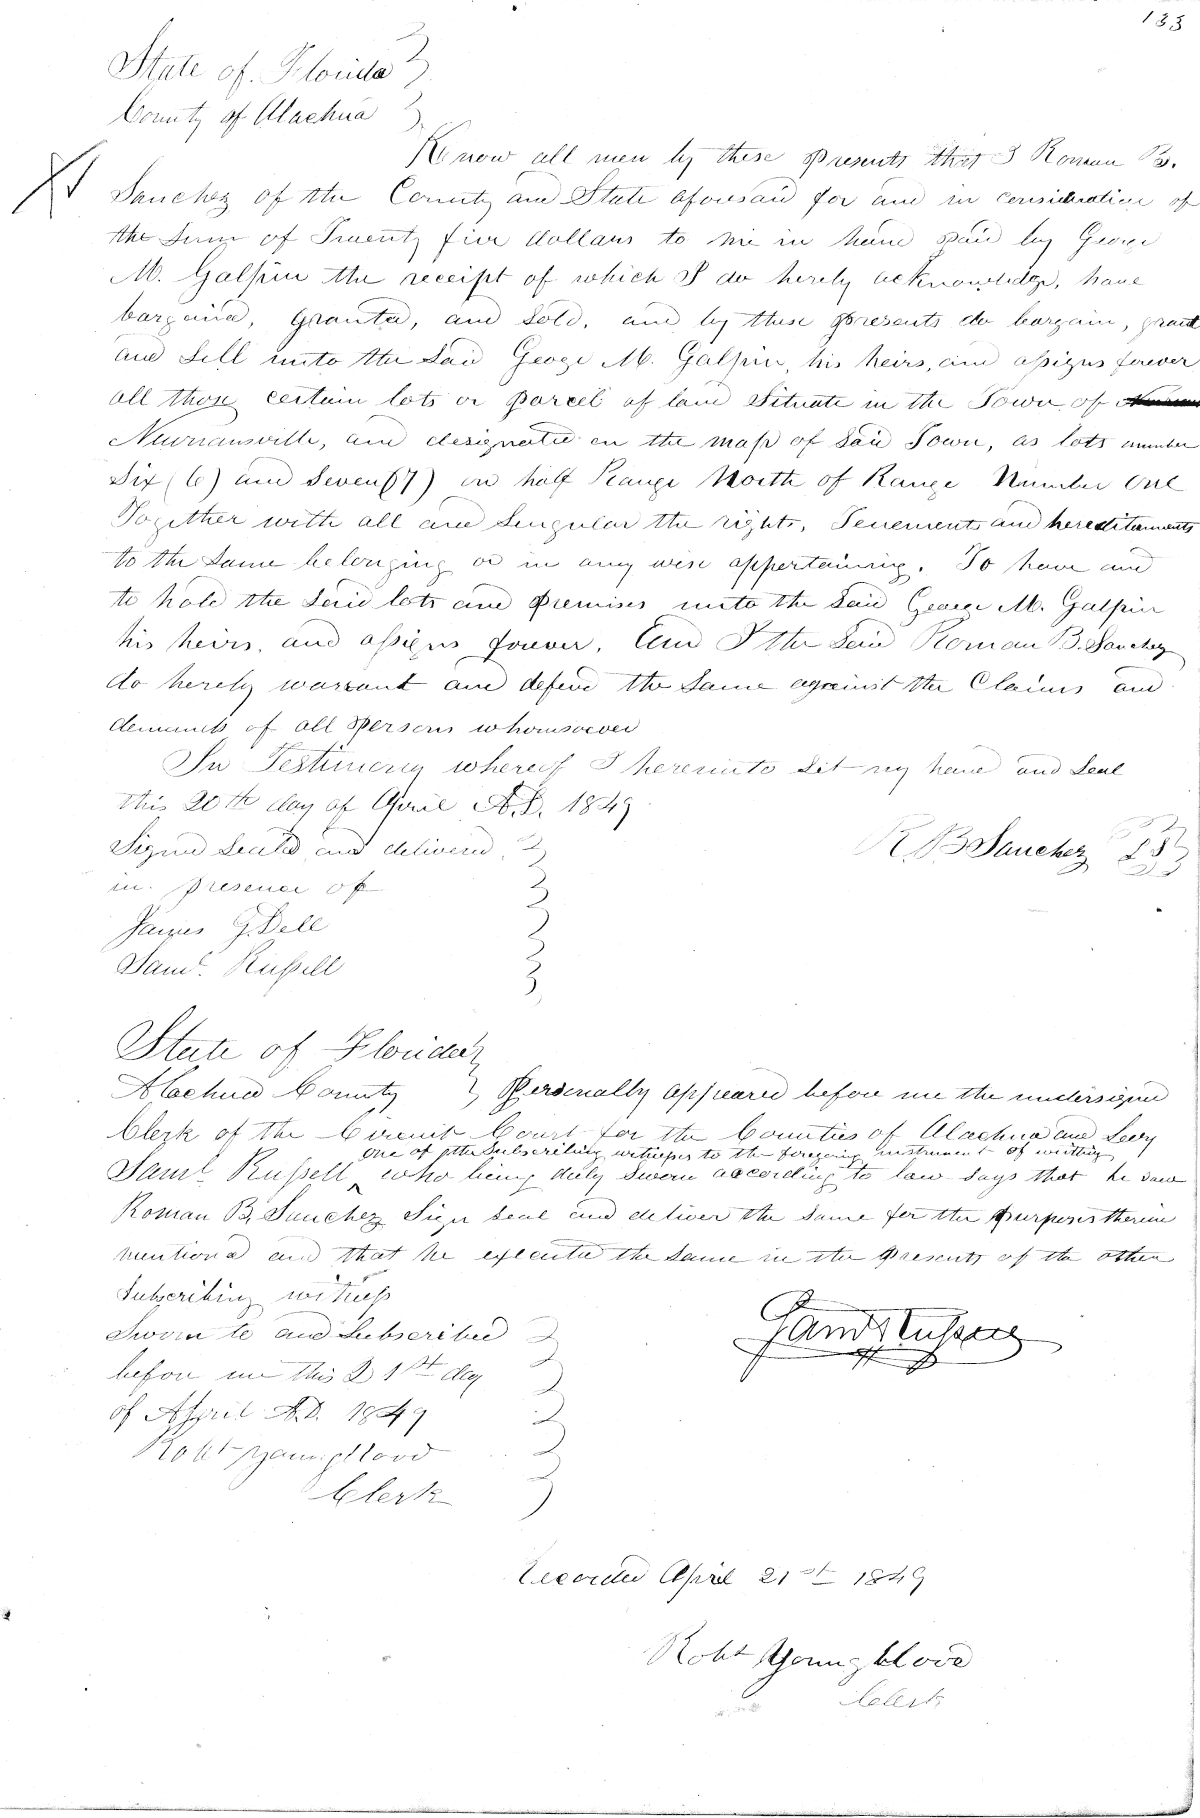 133
State of Florida
County of Alachua
Know all men by these presents that I Roman B.
Sanchez of the County and State aforesaid for and in consideration of
the Sum of Twenty five dollars to me in hand paid by George
M. Galpin the receipt of which I do hereby acknowledge, have
bargained, granted, and Sold, and by these presents do bargain, grant
and Sell unto the Said George M. Galpin, his heirs, and assigns forever
all those certain lots or parcel of land Situate in the Town of
Newnansville, and designated on the map of Said Town, as lots number
Six (6) and Seven (7) in half Range North of Range Number One
Together with all and Singular the rights, Tenements and hereditaments
to the Same belonging or in any wise appertaining. To have and
to hold the Said lots and premises unto the Said George M. Galpin
his heirs, and assigns forever. And I the Said Roman B. Sanchez
do hereby warrant and defend the Same against the Claims and
demands of all persons whomsoever
In Testimony whereof I hereunto Set my hand and Seal
this 20th day of April A.D. 1849
Signed Sealed and delivered
R. B Sanchez LS
in presence of
James G. Dell
Saml. Russell
State of Florida
Alachua County Personally appeared before me the undersigned
Clerk of the Circuit Court for the Counties of Alachua and Levy
one of the Subscribing witness to the foregoing instrument of writing
Saml Russell ^ who being duly Sworn according to law Says that he saw
Roman B. Sanchez Sign Seal and deliver the Same for the purposes therein
mentioned and that he executed the Same in the presents of the other
Subscribing witness
Sworn to and Subscribed
Saml Russell
before me this 21st day
of April A.D. 1849
Robt Youngblood
Clerk
Recorded April 21st 1849
Robt Youngblood
Clerk